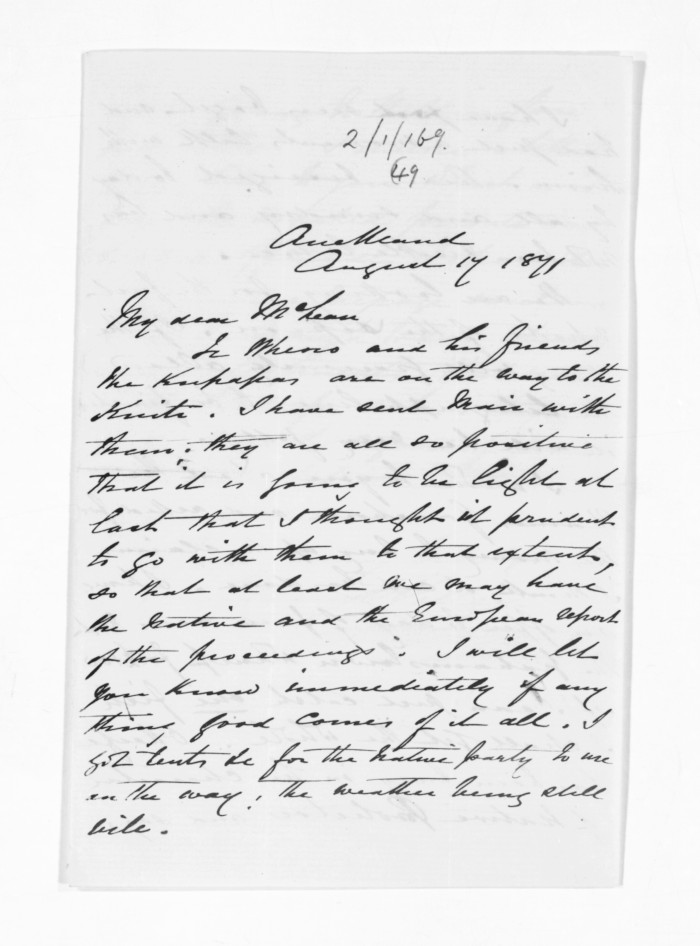 2/1/169.
49
Auckland
August 17 1871
My dear McLean
Te Wheoro and his friends
the Kupapas are on the way to the
Kuiti. I have sent Mair with
them; they are all so positive
that it is going to be light at
last that I thought it prudent
to go with them to that extent,
so that at least we may have
the Native and the European report
of the proceedings. I will let
you know immediately if any
thing good comes of it all. I
got tents &c for the Native party to use
on the way; the weather being still
vile.